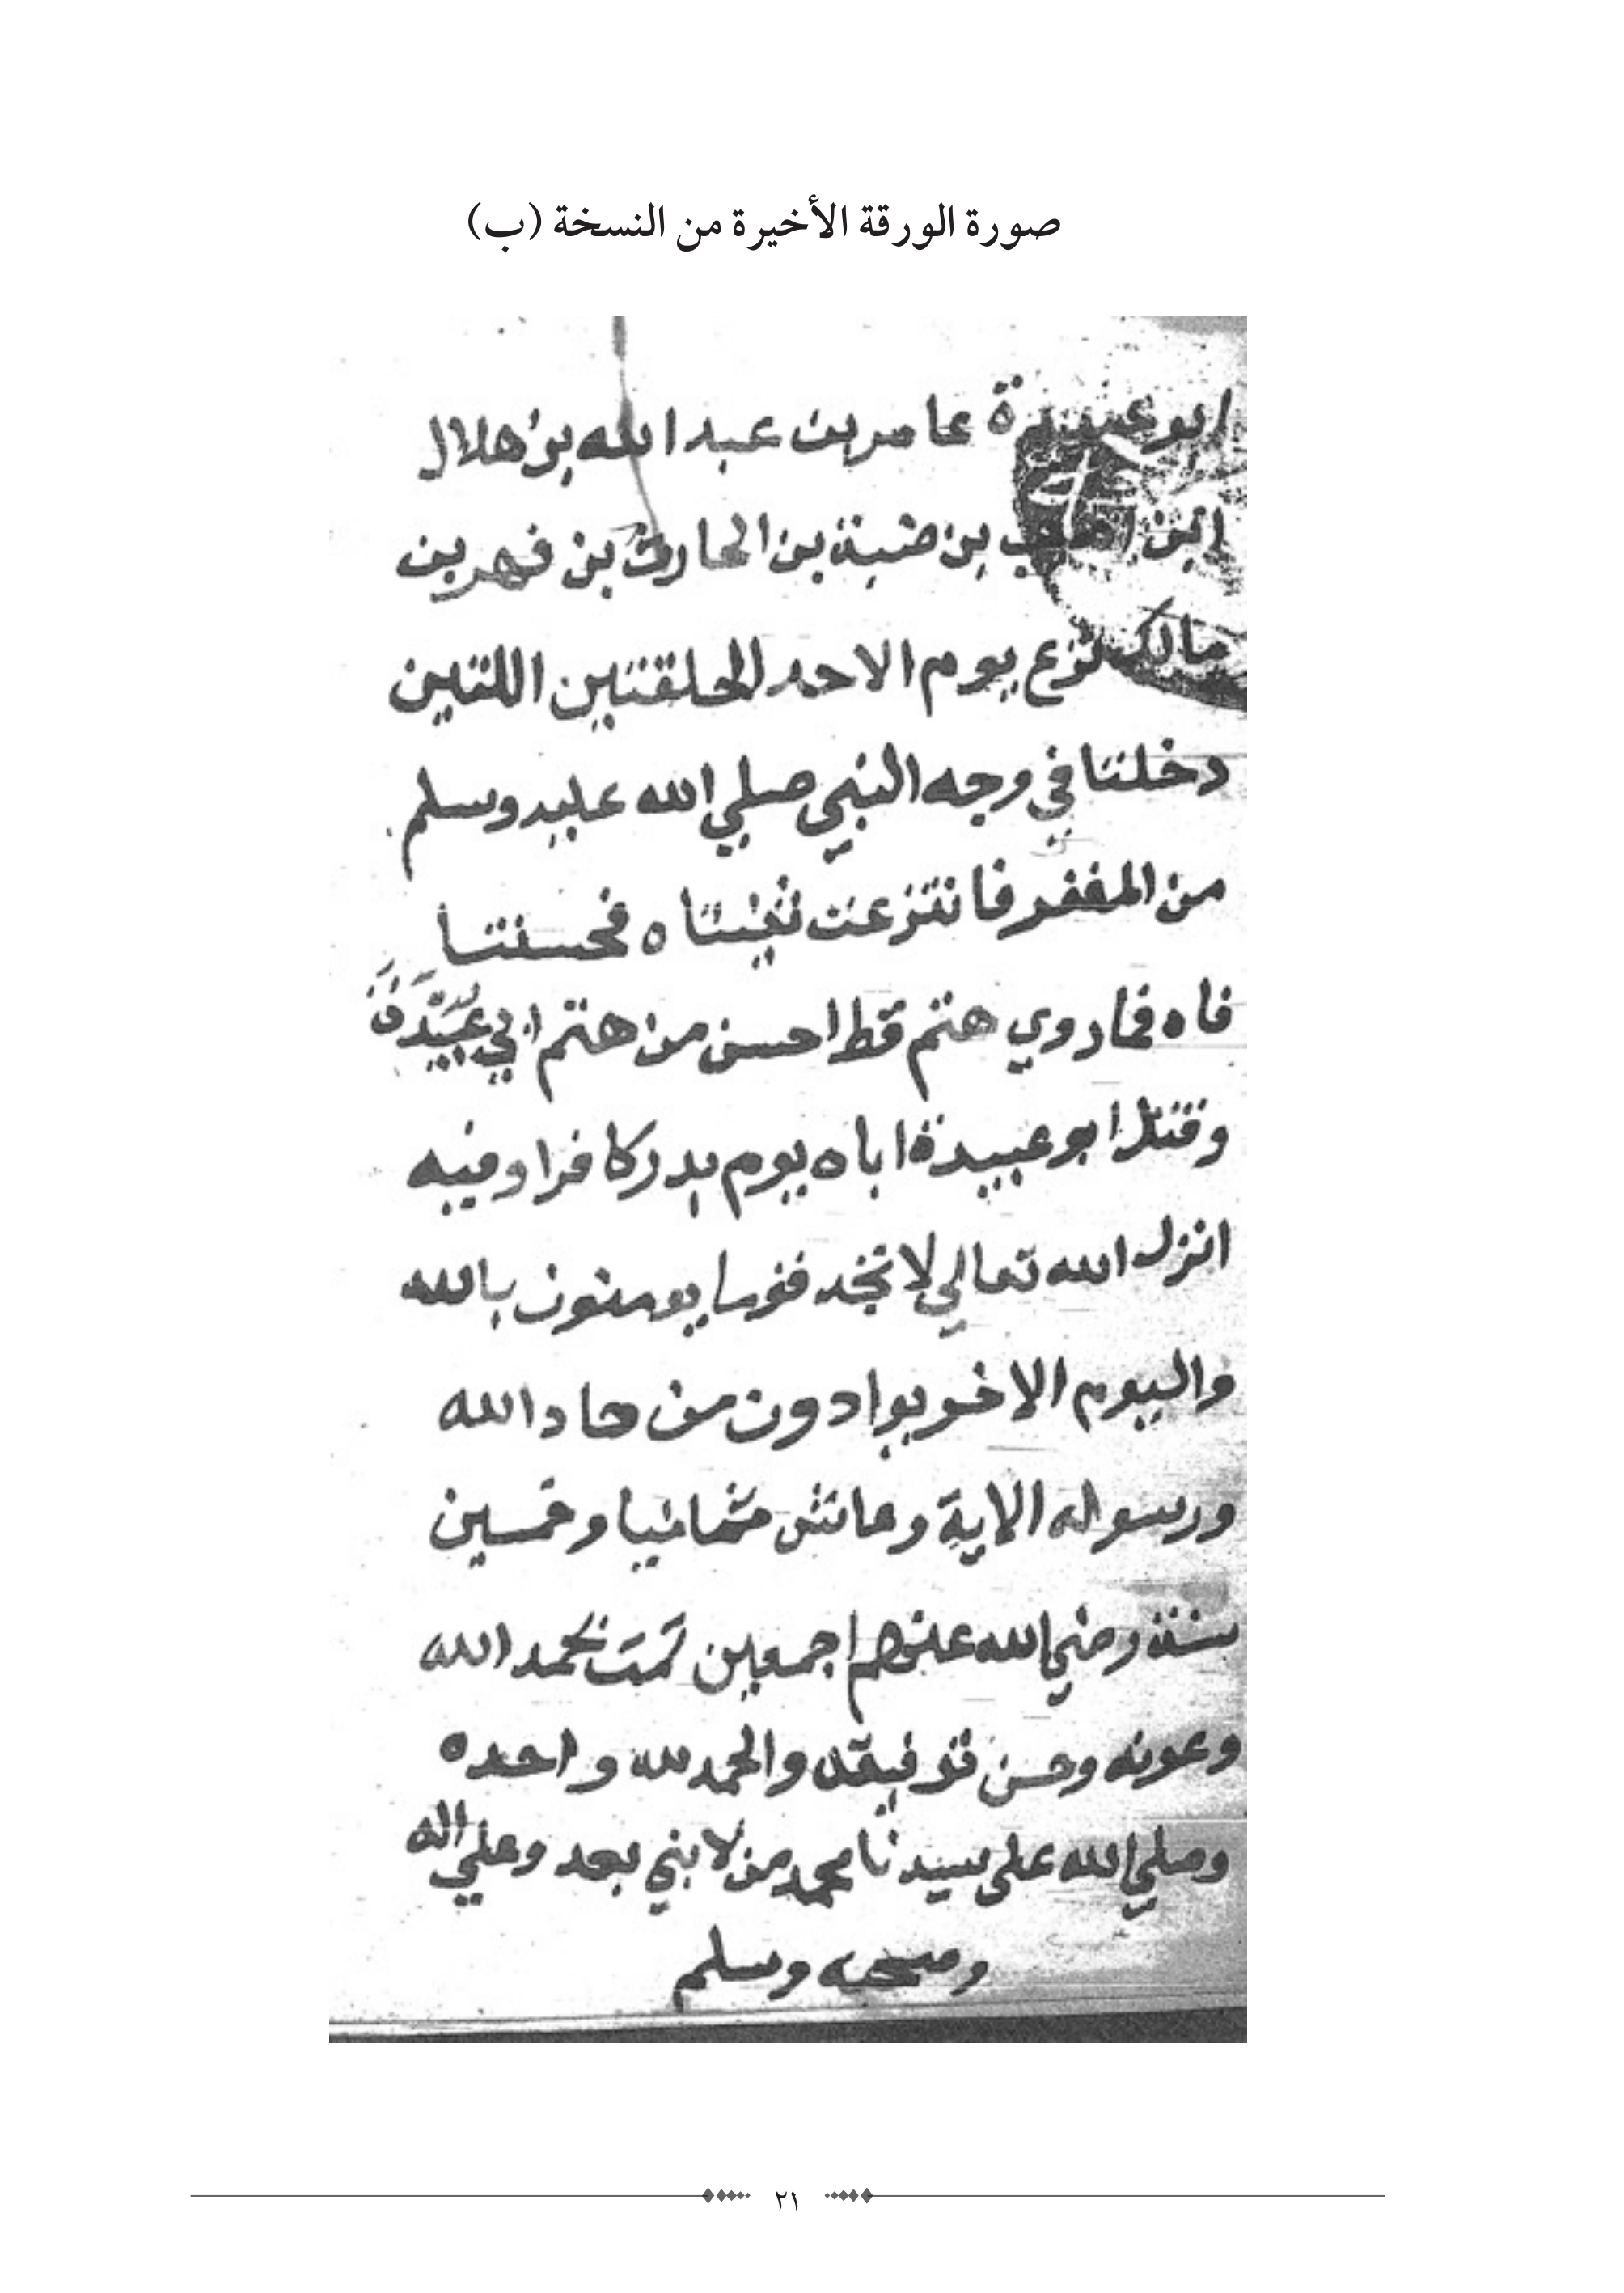 صورة الورقة الأخيرة من النسخة (ب)
ابو عبيدة عامر بن عبد الله بن هلال
ابن اهيب بن ضبة بن الحارث بن فهر بن
مالك نزع يوم الاحد الحلقتين اللتين
دخلتا في وجه النبي صلي الله عليه وسلم
من المغفر فانتزعت ثنيتاه فحسنتا
فاه فما روي هتم قط احسن من هتم ابي عبيدة
وقتل ابو عبيدة اباه يوم بدر كافرا وفيه
انزل الله تعالي لا تجد قوما يومنون بالله
واليوم الاخر يوادون من حاد الله
ورسوله الاية وعاش ثمانيا وخمسين
سنة رضي الله عنهم اجمعين تمت بحمد الله
وعونه وحسن توفيقه والحمد لله واحده
وصلي الله على سيدنا محمد من لا نبي بعد وعلي اله
وصحبه وسلم
٢١